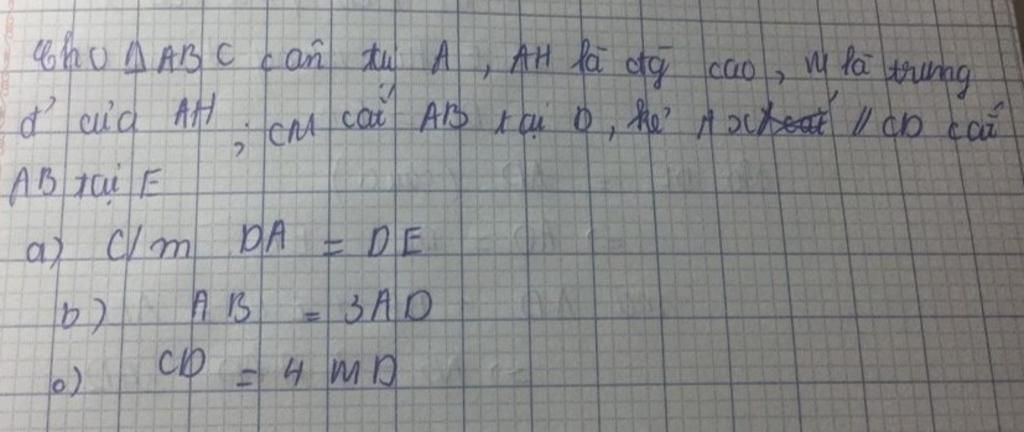 Cho Δ ABC cân tại A, AH là đg cao, M là trung
đ' của AH, CM cắt AB tại D, kẻ x // CD cắt
AB tại E
a) C/m DA = DE
b) AB = 3AD
c) CD = 4 MD